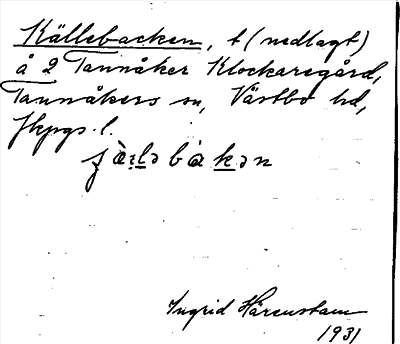 Källebacken, t (nedlagt)
å 2 Tannåker Klockaregård,
Tannåkers sn, Västbo hd,
Jkpgs. l.
ɟɑ̀ːlə bɑ̀kən
Ingrid Härenstam
1931